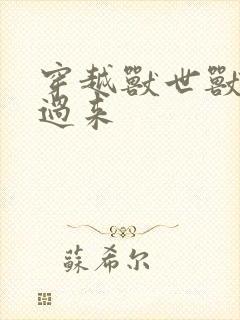 穿越獸世獸
過来
蘇希尔